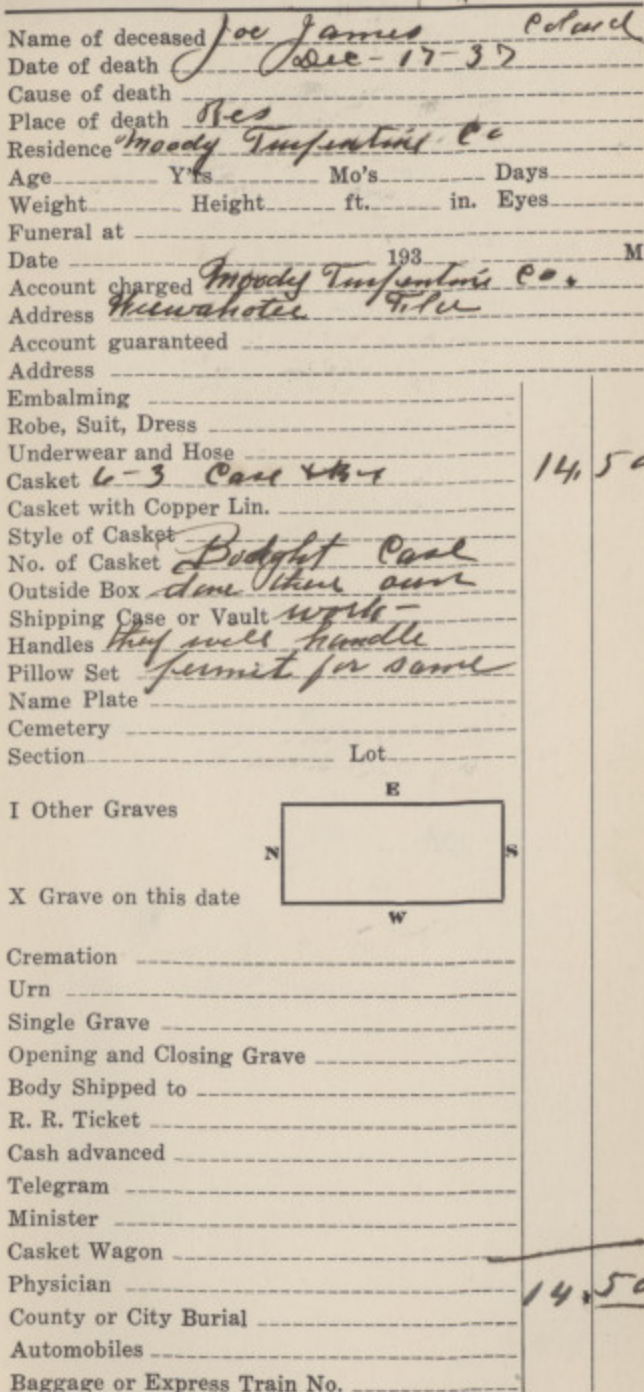 Name of deceased Joe James Colored
Date of death Dec - 17 - 37
Cause of death
Place of death Res
Residence Moody Turpentine Co
Age Y'rs Mo's Days
Weight Height ft. in. Eyes
Funeral at
Date 193 M
Account charged Moody Turpentine Co.
Address Wewahotee Fla
Account guaranteed
Address
Embalming
Robe, Suit, Dress
Underwear and Hose
Casket 6-3 Case 14.50
Casket with Copper Lin.
Style of Casket
No. of Casket Bought Case
Outside Box done there own
Shipping Case or Vault work -
Handles they will handle
Pillow Set permit for same
Name Plate
Cemetery
Section Lot
E
I Other Graves
N S
X Grave on this date
W
Cremation
Urn
Single Grave
Opening and Closing Grave
Body Shipped to
R. R. Ticket
Cash advanced
Telegram
Minister
Casket Wagon
Physician 14.50
County or City Burial
Automobiles
Baggage or Express Train No.